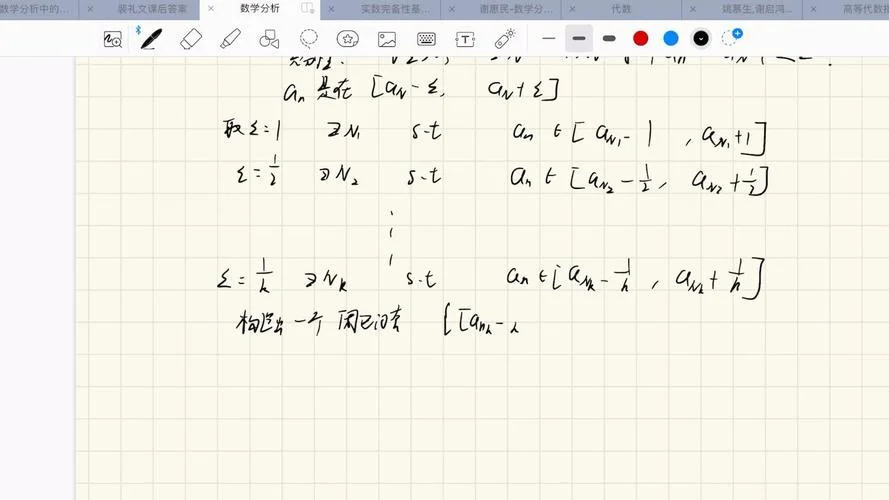 数学分析中的... 裴礼文课后答案 数学分析 实数完备性基... 谢惠民-数学分... 代数 姚慕生,谢启鸿... 高等代数
an 是在 [aN-ε, aN+ε]
取 ε=1 ∃N1 s.t an ∈ [aN1-1, aN1+1]
ε=1/2 ∃N2 s.t an ∈ [aN2-1/2, aN2+1/2]
⋮
ε=1/k ∃Nk s.t an ∈ [aNk-1/k, aNk+1/k]
构造出一个闭区间套 {[ank-